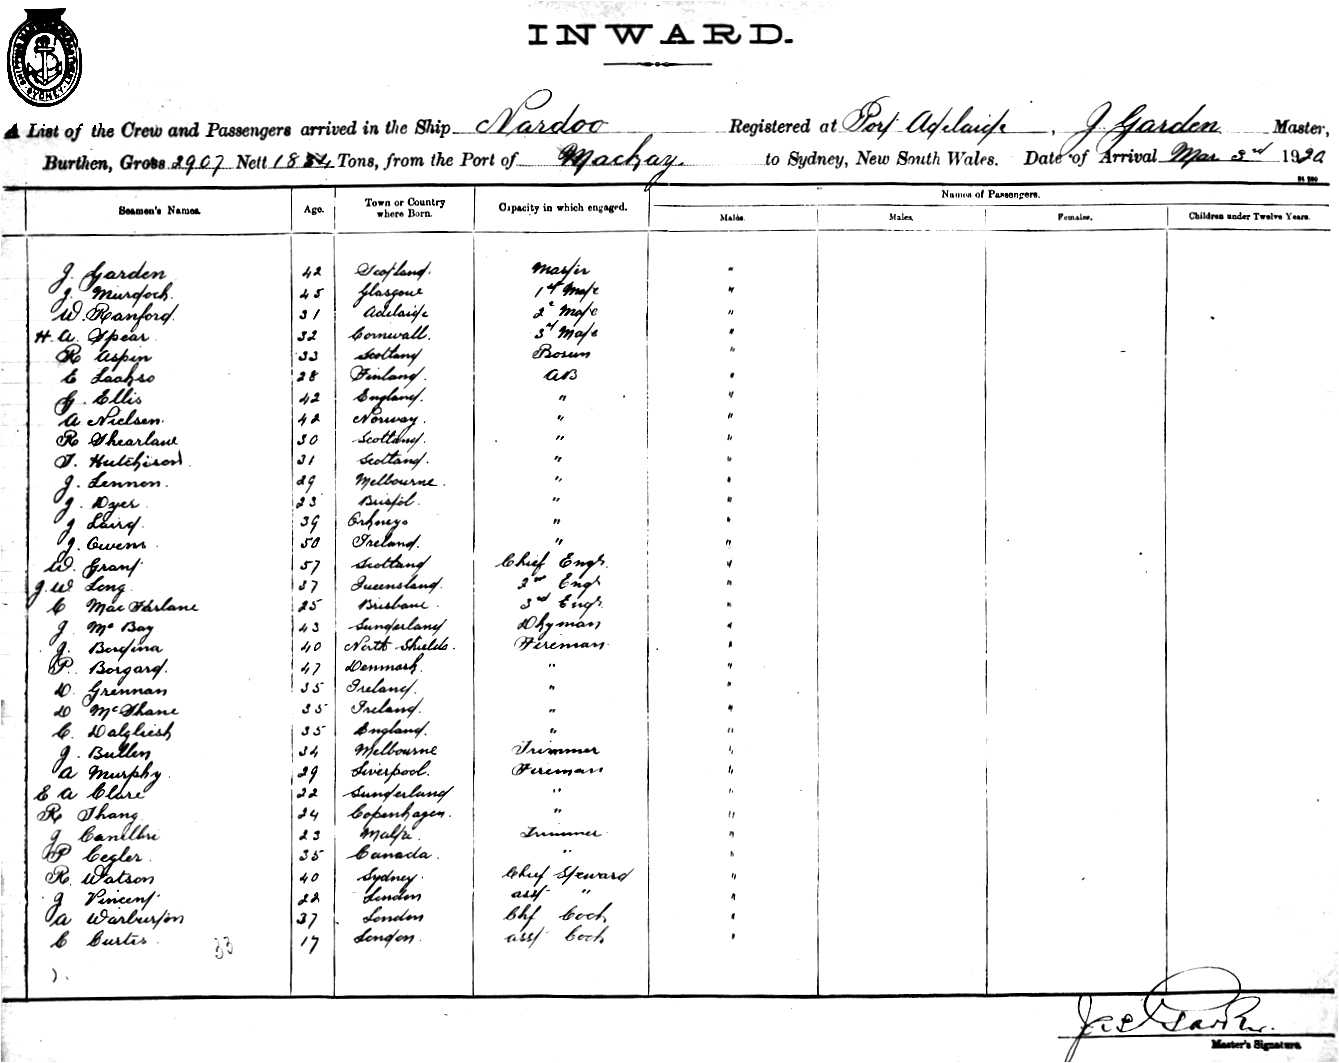 INWARD.
A List of the Crew and Passengers arrived in the Ship Nardoo Registered at Port Adelaide, J Garden Master,
Burthen, Gross 2907 Nett Tons, from the Port of Mackay. to Sydney, New South Wales. Date of Arrival Mar 3rd 1920
Seamen's Names. Age. Town or Country where Born. Capacity in which engaged. Names of Passengers.
Males. Males. Females. Children under Twelve Years.
J. Garden 42 Scotland. Master "
J. Murdoch. 45 Glasgow 1st Mate "
W. Ranford. 31 Adelaide 2d Mate "
H. A. Spear 32 Cornwall. 3rd Mate "
R Aspin 33 Scotland Bosun "
E Laakso 28 Finland. AB "
G. Ellis 42 England. " "
A Nielsen. 42 Norway. " "
R Shearlaw 30 Scotland. " "
T. Hutchison 31 Scotland. " "
J. Lennon. 29 Melbourne. " "
J. Dyer 23 Bristol. " "
J Laird. 39 Orkneys " "
J. Owens 50 Ireland. " "
W. Grant 57 Scotland Chief Engr. "
J. W Long 37 Queensland. 2nd Engr "
C MacFarlane 25 Brisbane. 3rd Engr "
J. McBay 43 Sunderland Dkyman "
J. Bordina 40 North Shields. Fireman "
P. Borgard. 47 Denmark. " "
D. Grennan 35 Ireland. " "
D McShane 35 Ireland. " "
C. Dalgliesh 35 England. " "
J. Bullen 34 Melbourne Trimmer "
A Murphy. 29 Liverpool. Fireman "
E A Clare 22 Sunderland " "
R Thang 24 Copenhagen. " "
J 23 Malta. Trimmer "
P Cegler. 35 Canada. " "
R. Watson 40 Sydney. Chief Steward "
J Vincent 22 London asst " "
A Warburton 37 London Chf Cook "
C Curtis 33 17 London. asst Cook "
Master's Signature